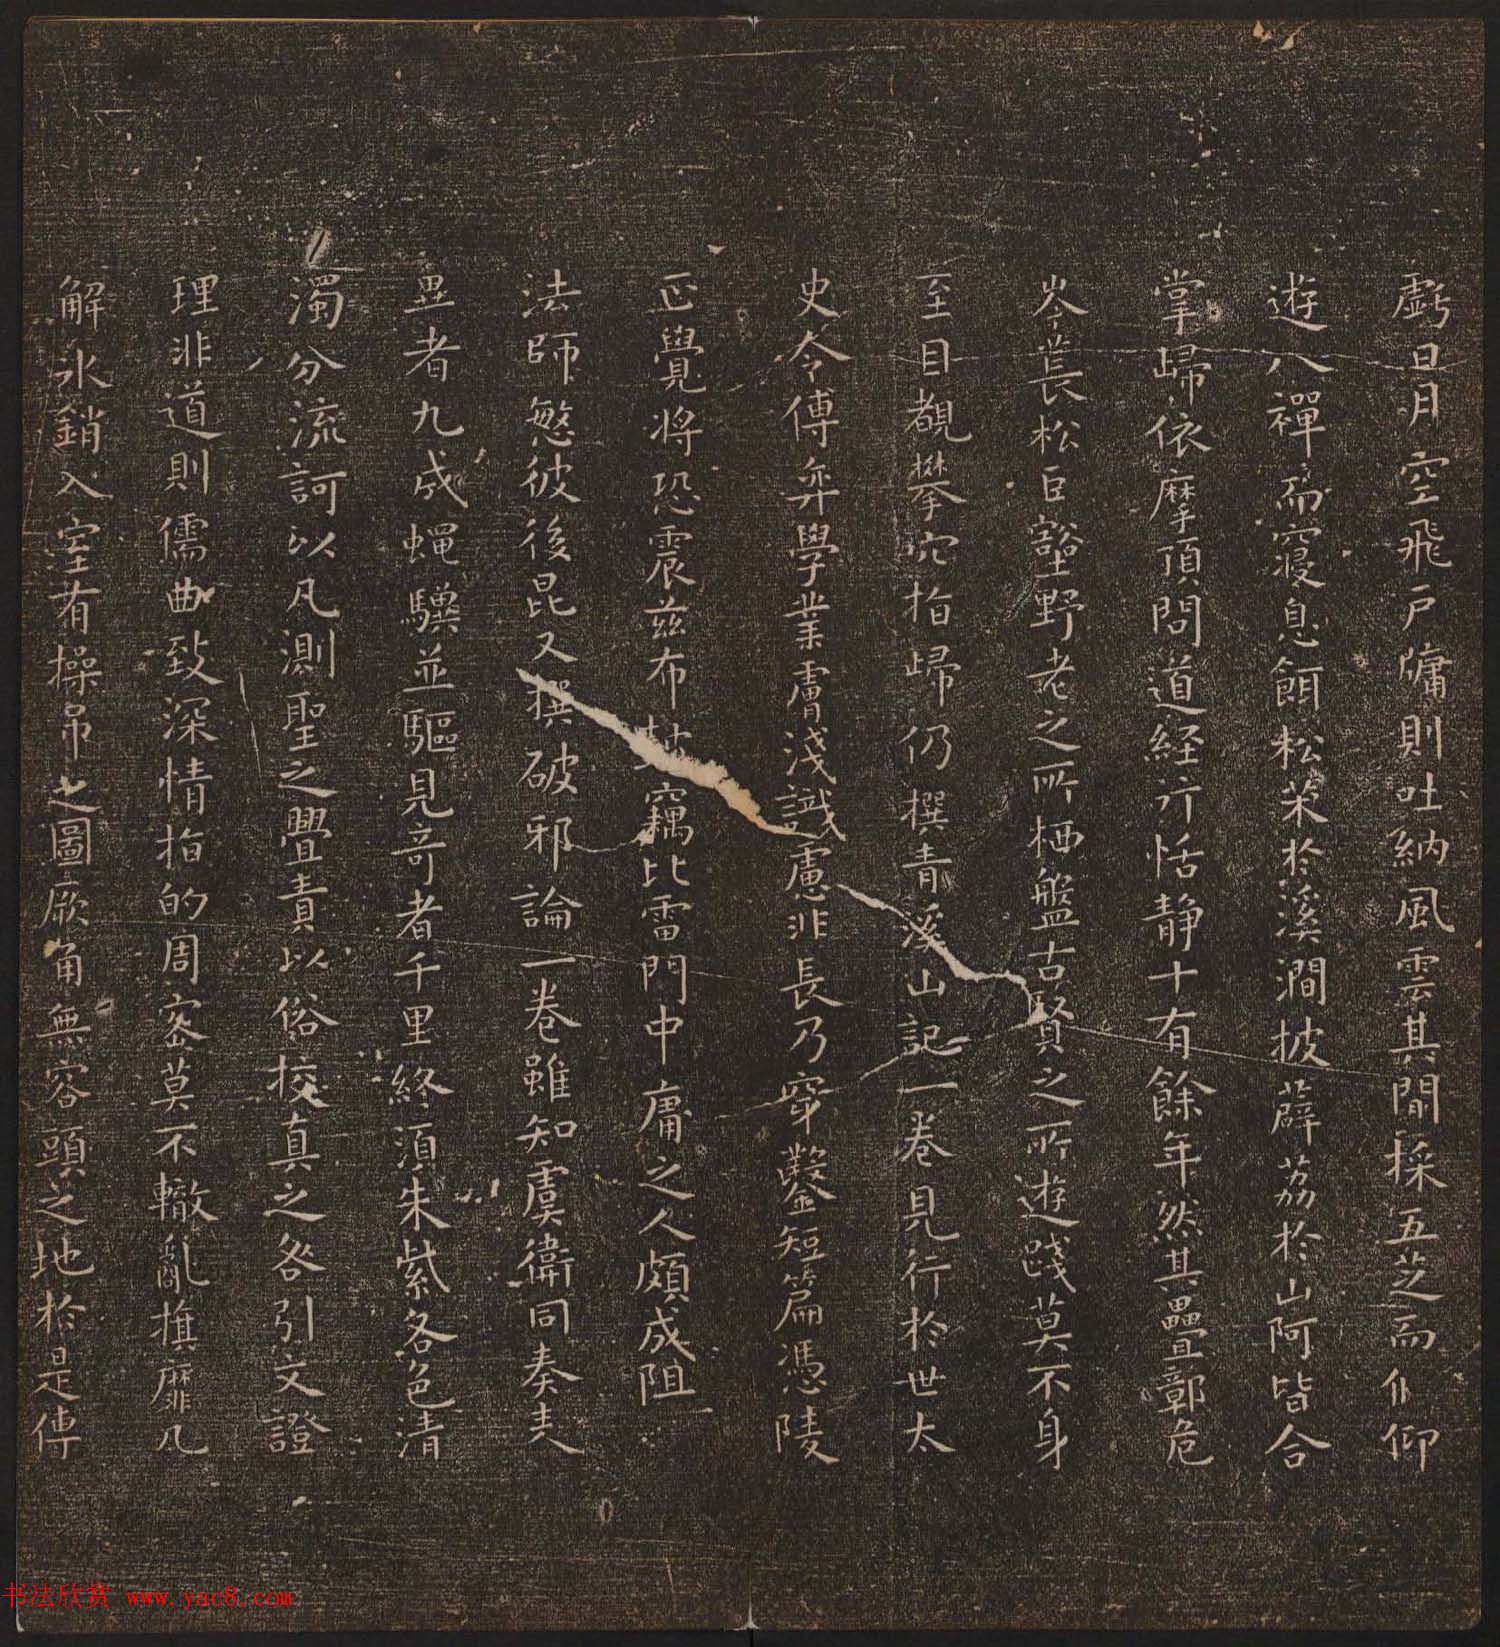 虧日月空飛戶牖則吐納風雲其間採五芝而偃仰
遊八禪而寢息餌松茱於溪澗披薜荔於山阿皆合
掌歸依摩頂問道經行恬静十有餘年然其疊鄣危
岑長松巨壑野老之所栖盤古賢之所遊踐莫不身
至目覩攀穴指歸仍撰青溪山記一卷見行於世太
史令傅弈學業膚淺識慮非長乃穿鑿短篇憑陵
正覺將恐震茲布鼓竊比雷門中庸之人頗成阻
法師愍彼後昆又撰破邪論一卷雖知虞衛同奏表
異者九成蠅驥並驅見奇者千里終須朱紫各色清
濁分流訶以凡測聖之舋責以俗校真之咎引文證
理非道則儒曲致深情指的周密莫不轍亂旗靡凡
解氷銷入室有操吊之圖厥角無容頭之地於是傳
书法欣赏 www.yac8.com